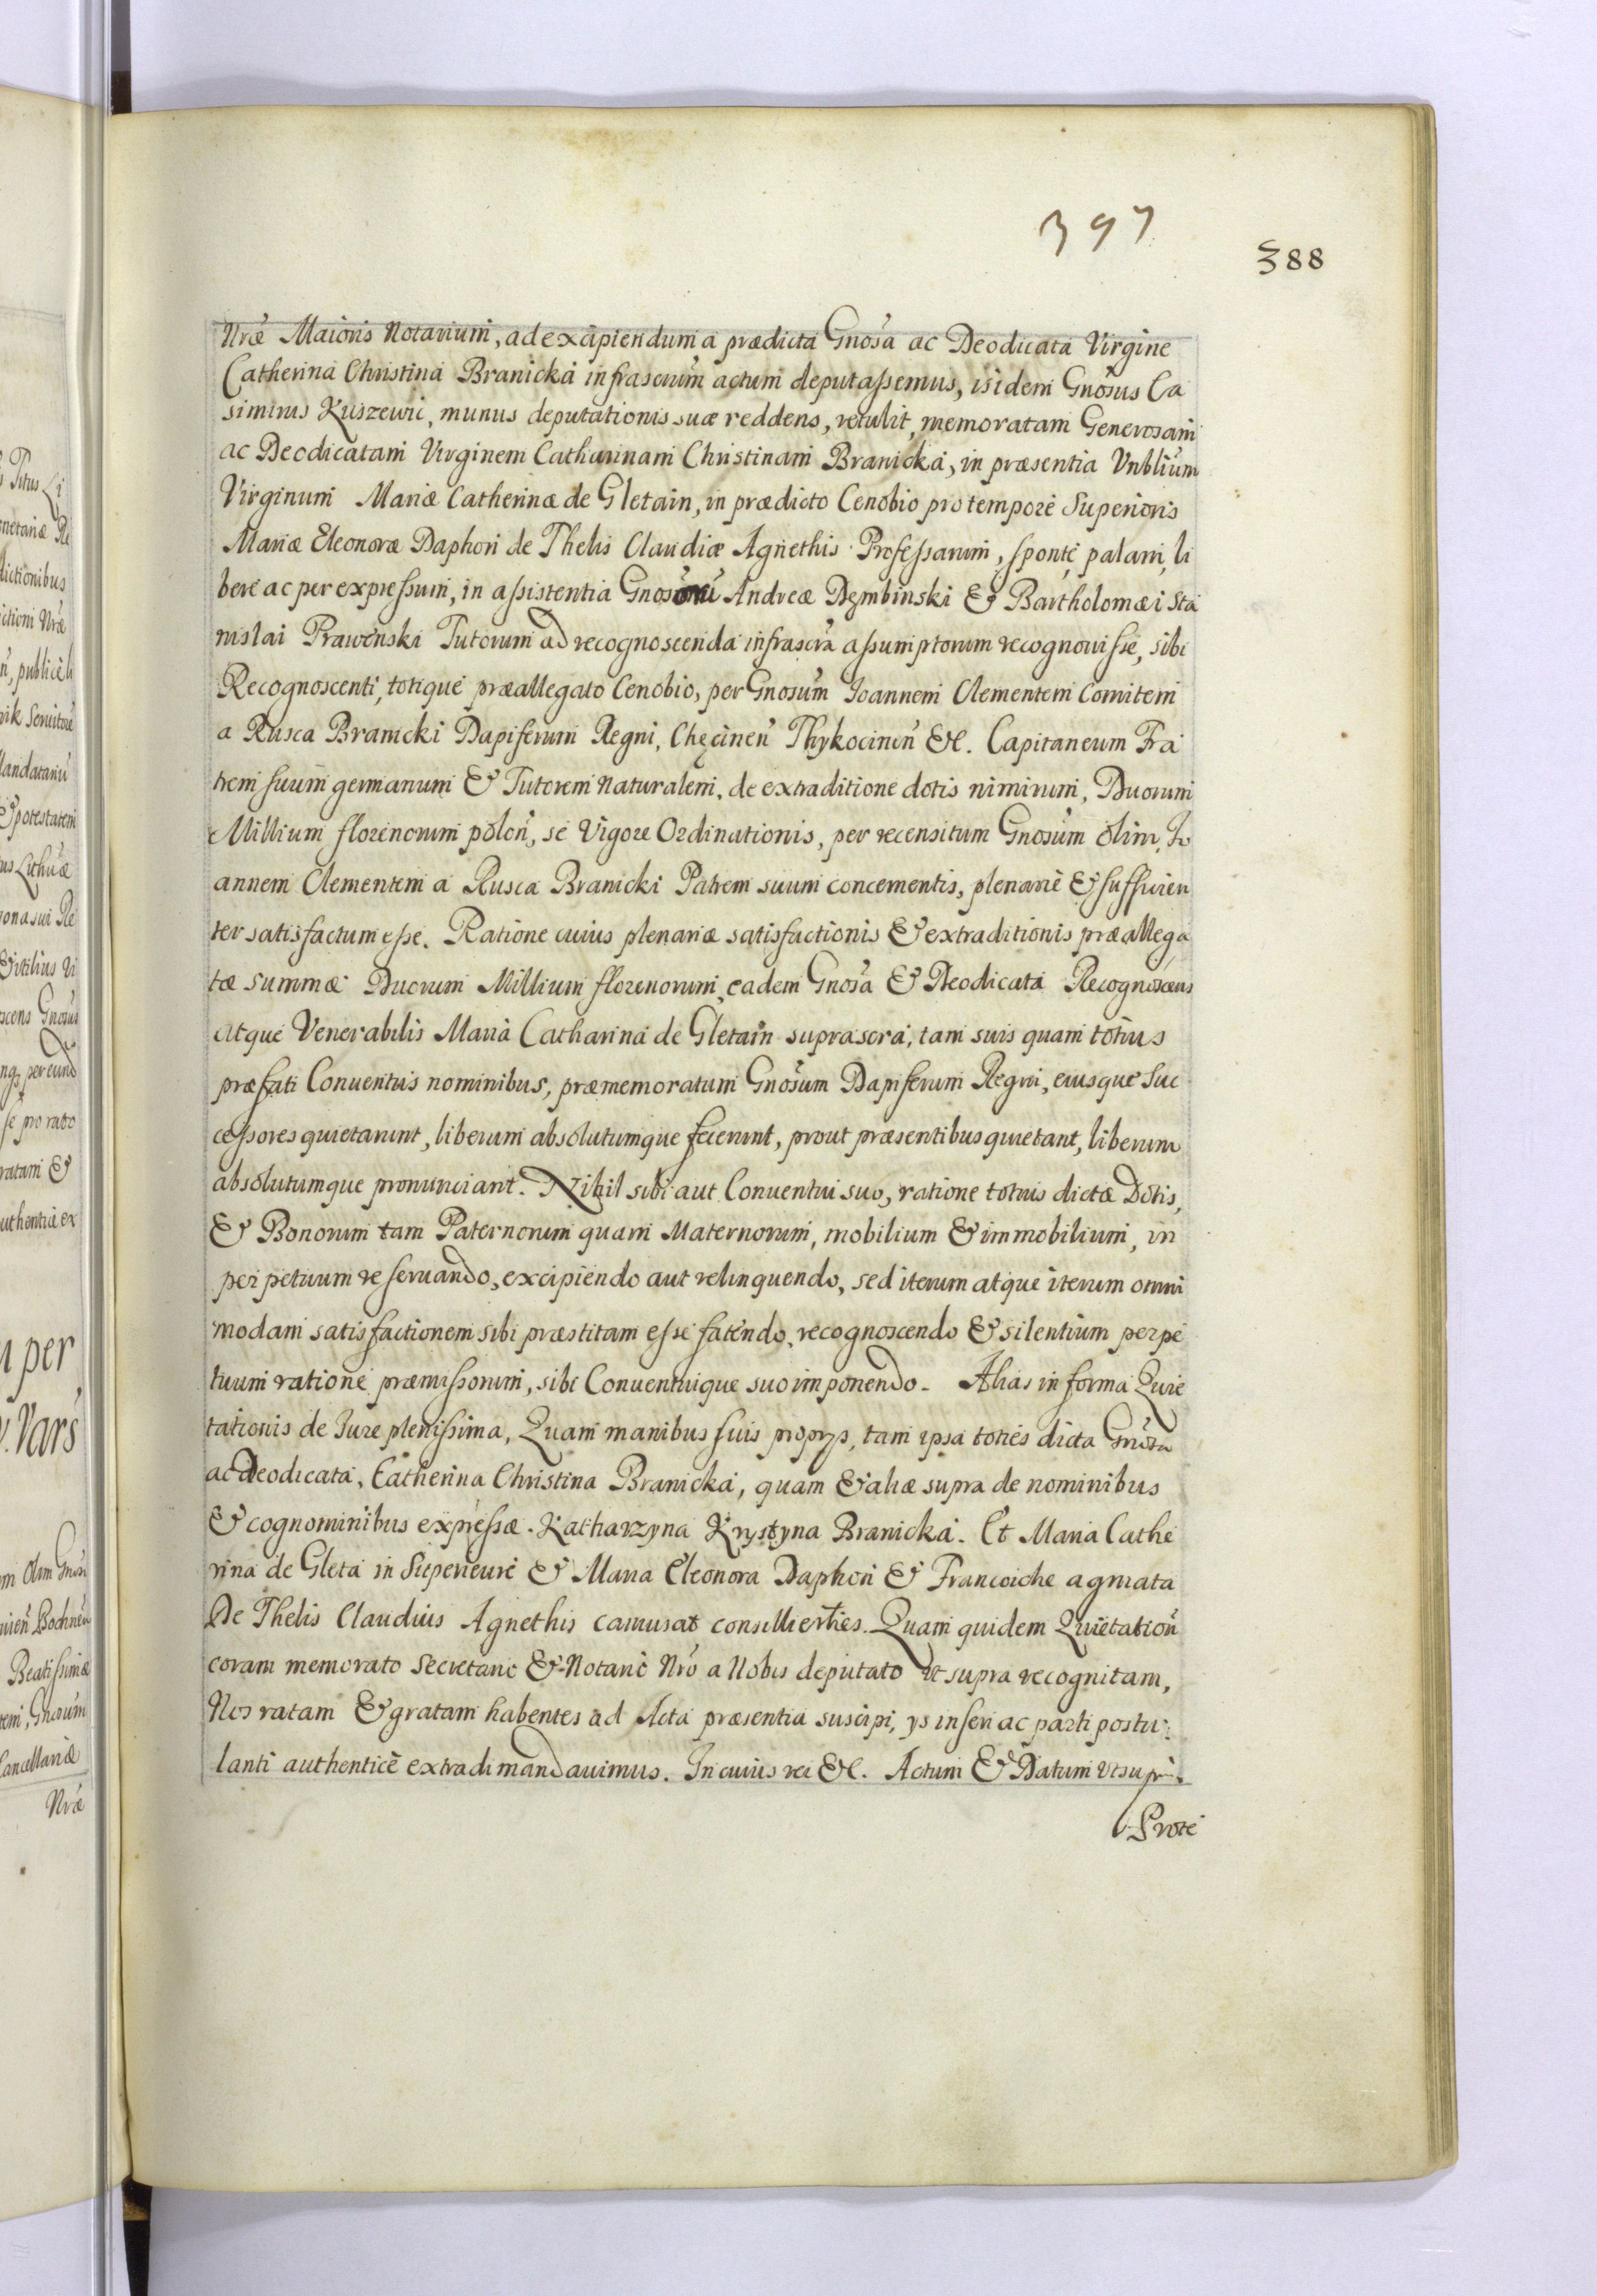 397
388
Nrae Maioris Notarium, ad excipiendum a praedicta Gnosa ac Deodicata Virgine
Catherina Christina Branicka infrascrum actum deputassemus, isidem Gnosus Ca
simirus Kuszewic, munus deputationis suae reddens, retulit, memoratam Generosam
ac Deodicatam Virginem Catharinam Christinam Branicka, in praesentia Vnblium
Virginum Mariae Catherinae de Gletain, in praedicto Cenobio pro tempore Superioris
Mariae Eleonorae Daphon de Thelis Claudiae Agnethis Professarum, sponte, palam, li
bere ac per expressum, in assistentia Gnosoru Andreae Dęmbinski & Bartholomaei Sta
nislai Prawenski Tutorum ad recognoscenda infrascra assumptorum recognouisse, sibi
Recognoscenti, totique praeallegato Cenobio, per Gnosum Joannem Clementem Comitem
a Rusca Branicki Dapiferum Regni, Chęcinen Thykocinen &c. Capitaneum Fra
trem suum germanum & Tutorem naturalem, de extraditione dotis nimirum, Duorum
Millium florenorum polon, se vigore Ordinationis, per recensitum Gnosum olim Jo
annem Clementem a Rusca Branicki Patrem suum concernentis, plenarie & sufficien
ter satisfactum esse. Ratione cuius plenariae satisfactionis & extraditionis praeallega
tae summae Duorum Millium florenorum, eadem Gnosa & Deodicata Recognoscens
atque Venerabilis Maria Catharina de Gletain suprascra, tam suis quam totius
praefati Conuentus nominibus, praememoratum Gnosum Dapiferum Regni, eiusque Suc
cessores quietarunt, liberum absolutumque fecerunt, prout praesentibus quietant, liberum
absolutumque pronunciant. Nihil sibi aut Conuentui suo, ratione totius dictae Dotis,
& Bonorum tam Paternorum quam Maternorum, mobilium & immobilium, in
perpetuum reseruando, excipiendo aut relinquendo, sed iterum atque iterum omni
modam satisfactionem sibi praestitam esse fatendo, recognoscendo & silentium perpe
tuum ratione praemissorum, sibi Conuentuique suo imponendo. Alias in forma Quie
tationis de Jure plenissima, Quam manibus suis proprys, tam ipsa toties dicta Gnosa
ac Deodicata, Catherina Christina Branicka, quam & aliae supra de nominibus
& cognominibus expressae. Katharzyna Krystyna Branicka. Et Maria Cathe
rina de Gleta in Superieure & Maria Eleonora Daphon & Francoiche agmata
De Thelis Claudius Agnethis camusat consillierties. Quam quidem Quietation
coram memorato Secretario & Notario Nro a Nobis deputato ut supra recognitam,
Nos ratam & gratam habentes ad Acta praesentia suscipi, ys inseri ac parti postu
lanti authentice extradi mandauimus. In cuius rei &c. Actum & Datum ut supra.
Prote